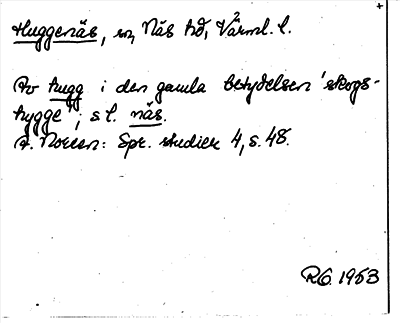 Huggenäs, sn, Näs hd, Värml. l.
Av hugg i den gamla betydelsen 'skogs-
hygge'; s l. näs.
A. Noreen: Spr. studier 4, s. 48.
RG. 1953